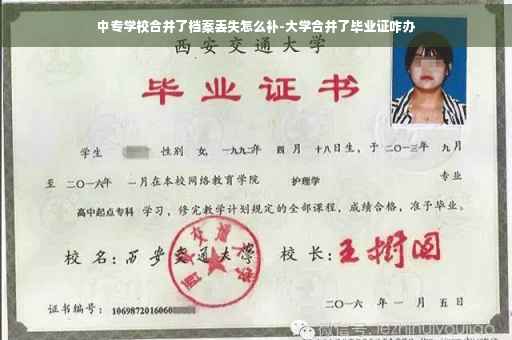 中专学校合并了档案丢失怎么补-大学合并了毕业证咋办
西安交通大学
毕业证书
学生 性别 女, 一九九二年 四 月 十八日生, 于 二〇一三年 九月
至 二〇一六年 一月在本校网络教育学院 护理学 专业
高中起点专科 学习, 修完教学计划规定的全部课程, 成绩合格, 准予毕业。
校 名: 西安交通大学 校 长: 王树国
证书编号: 1069872016060
二〇一六 年 一 月 五 日
微信号: jiezhinuiyoujiao